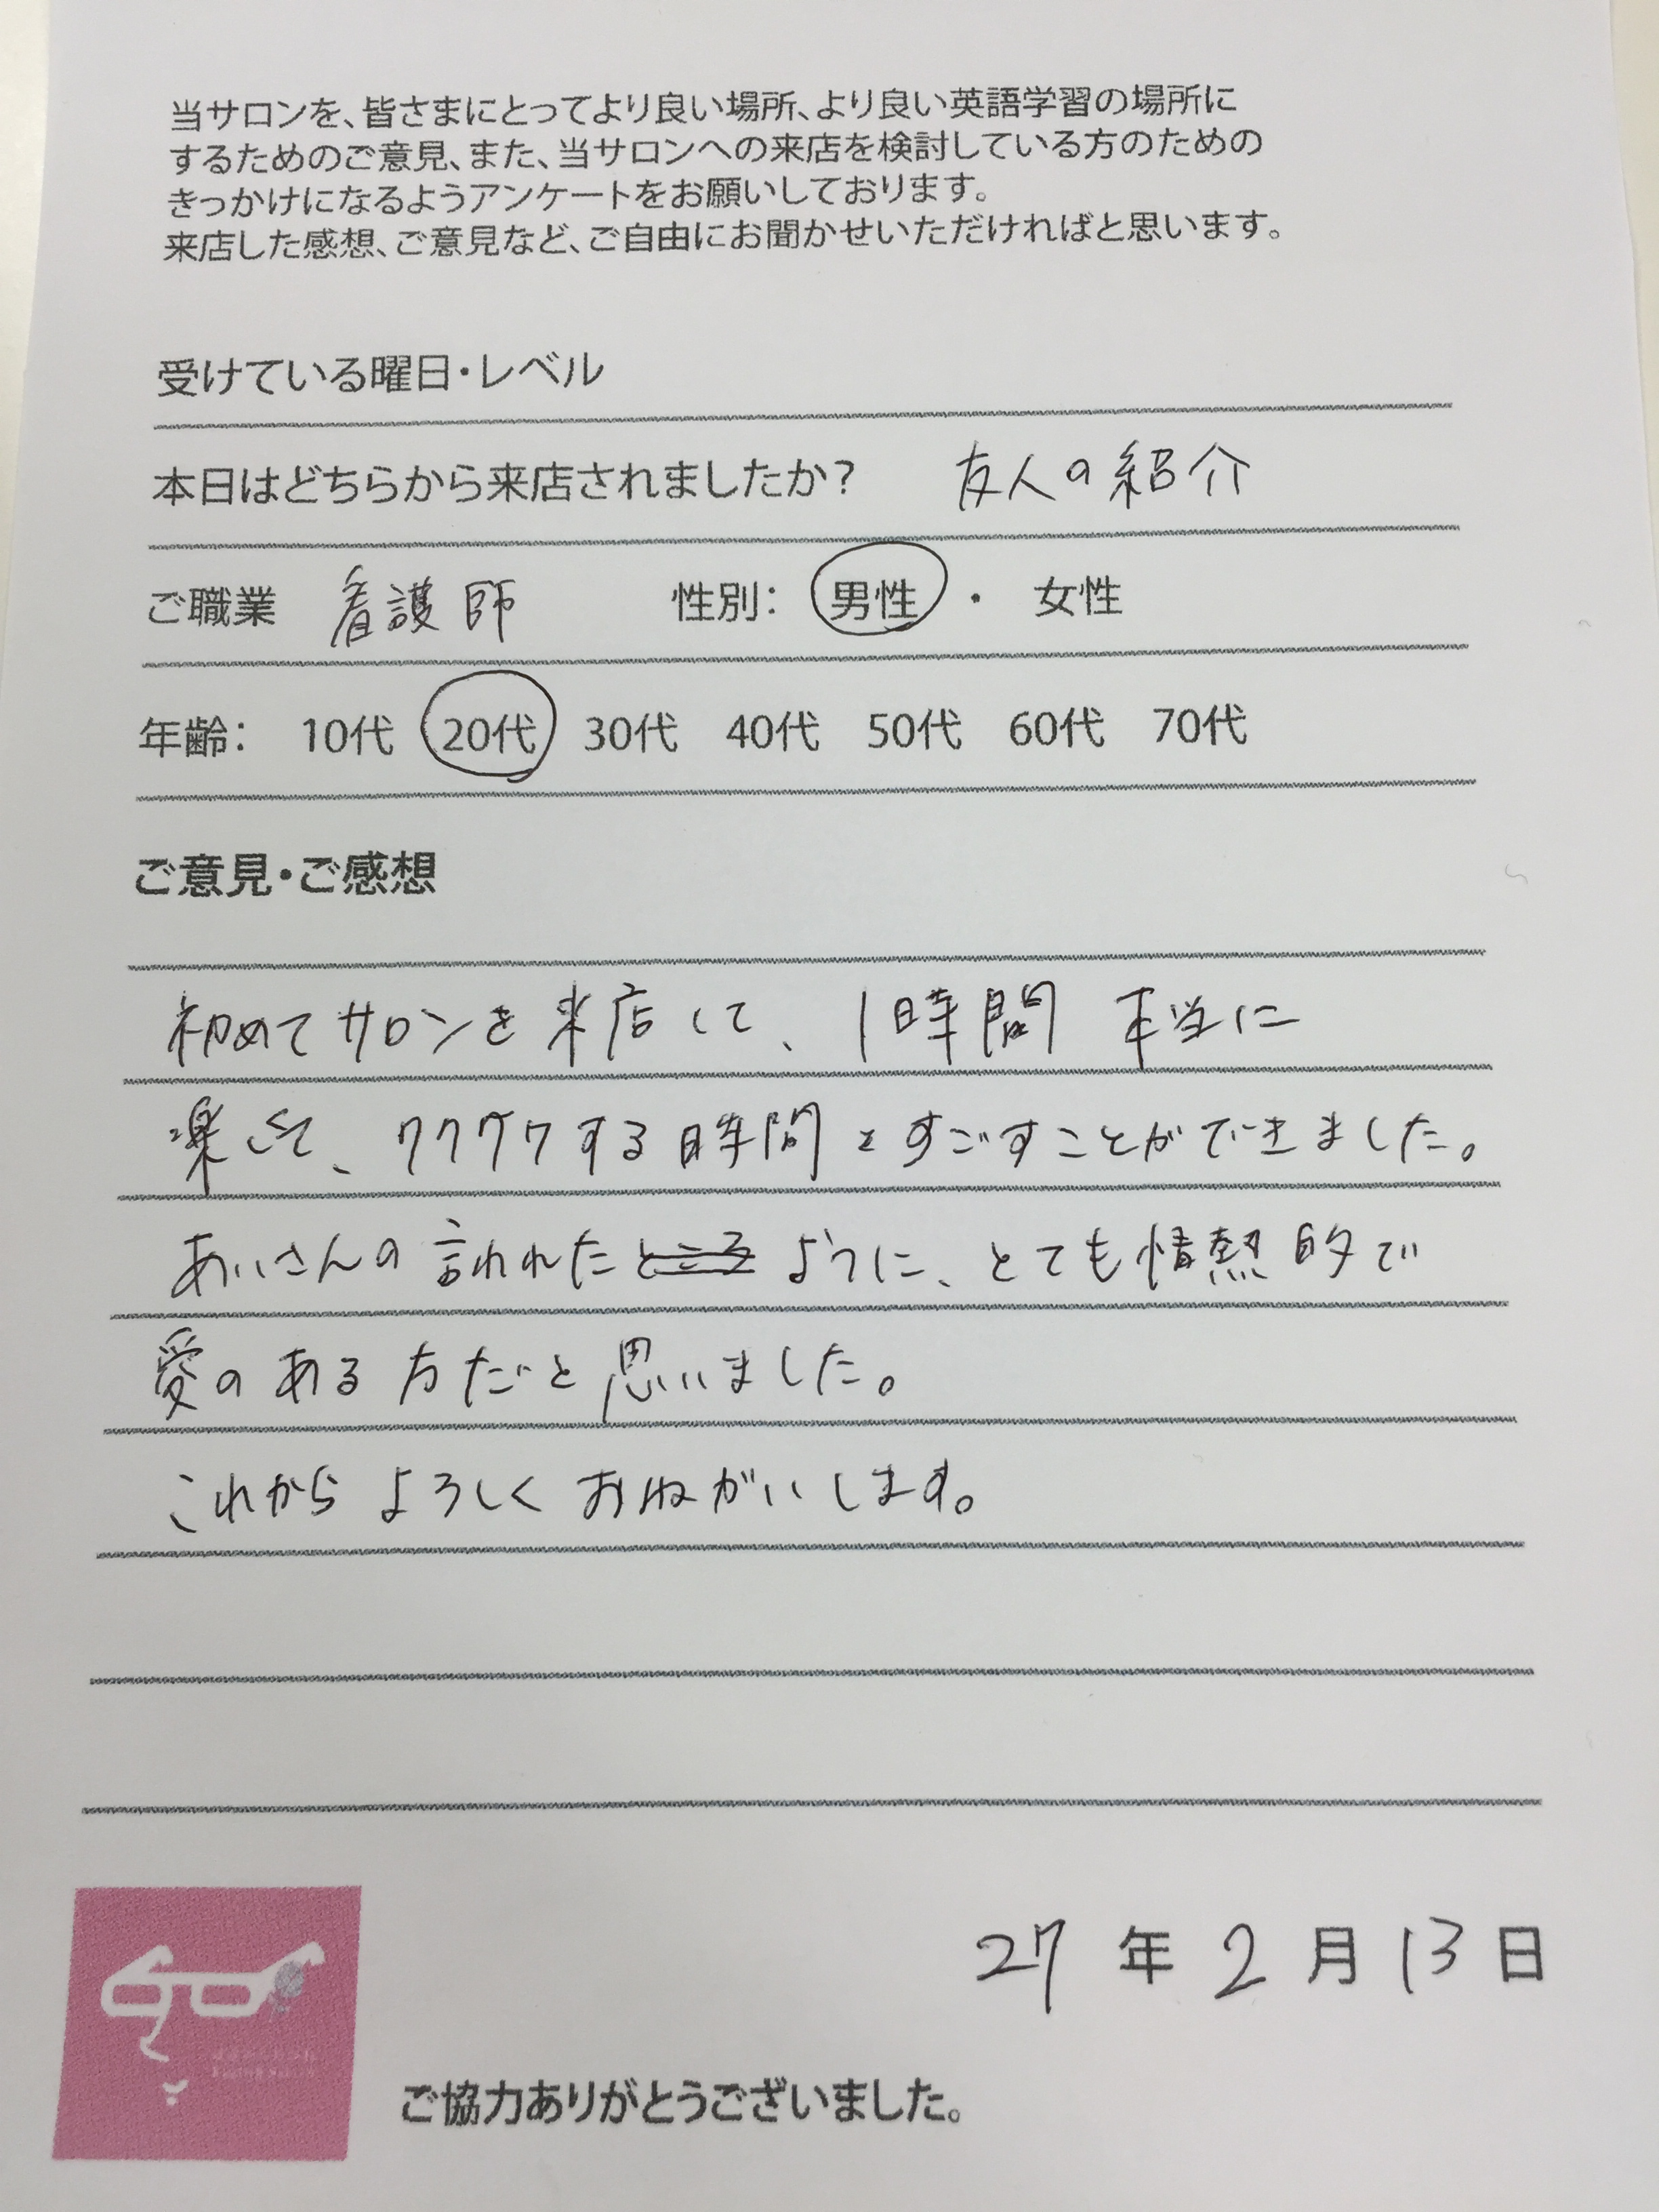 当サロンを、皆さまにとってより良い場所、より良い英語学習の場所に
するためのご意見、また、当サロンへの来店を検討している方のための
きっかけになるようアンケートをお願いしております。
来店した感想、ご意見など、ご自由にお聞かせいただければと思います。
受けている曜日・レベル
本日はどちらから来店されましたか? 友人の紹介
ご職業 看護師 性別: 男性 ・ 女性
年齢: 10代 20代 30代 40代 50代 60代 70代
ご意見・ご感想
初めてサロンを来店して、1時間 本当に
楽しくて、ワクワクする時間をすごすことができました。
あいさんの言われたところ ように、とても情熱的で
愛のある方だと思いました。
これからよろしくおねがいします。
27年2月13日
ご協力ありがとうございました。